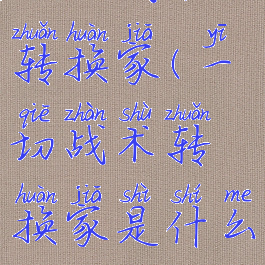 zhuǎn huàn jiā yī
转换家(一
qiē zhàn shù zhuǎn
切战术转
huàn jiā shì shí me
换家是什么